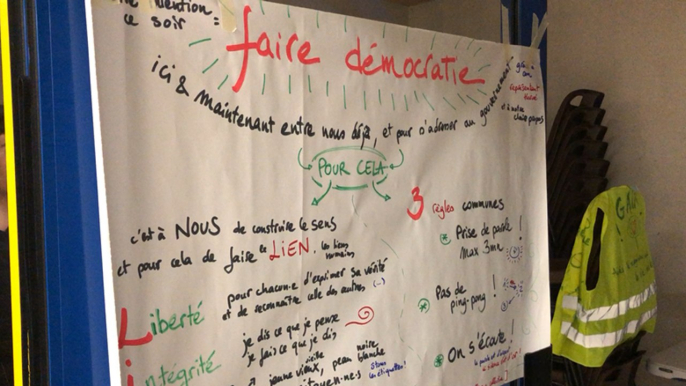 intention =
ce soir
faire démocratie
ici & maintenant entre nous déjà, et pour s'adresser au gouvernement
POUR CELA
c'est à NOUS de construire le sens
et pour cela de faire le LiEN. les liens
humains
pour chacun.e d'exprimer sa vérité
et de reconnaître celle des autres (...)
Liberté
je dis ce que je pense
je fais ce que je dis
intégrité
jeune vieux, peau noire
blanche
citoyen-ne-s
stons
les étiquettes!
3 règles communes
Prise de parole !
max 3mn
Pas de
ping-pong !
On s'écoute !